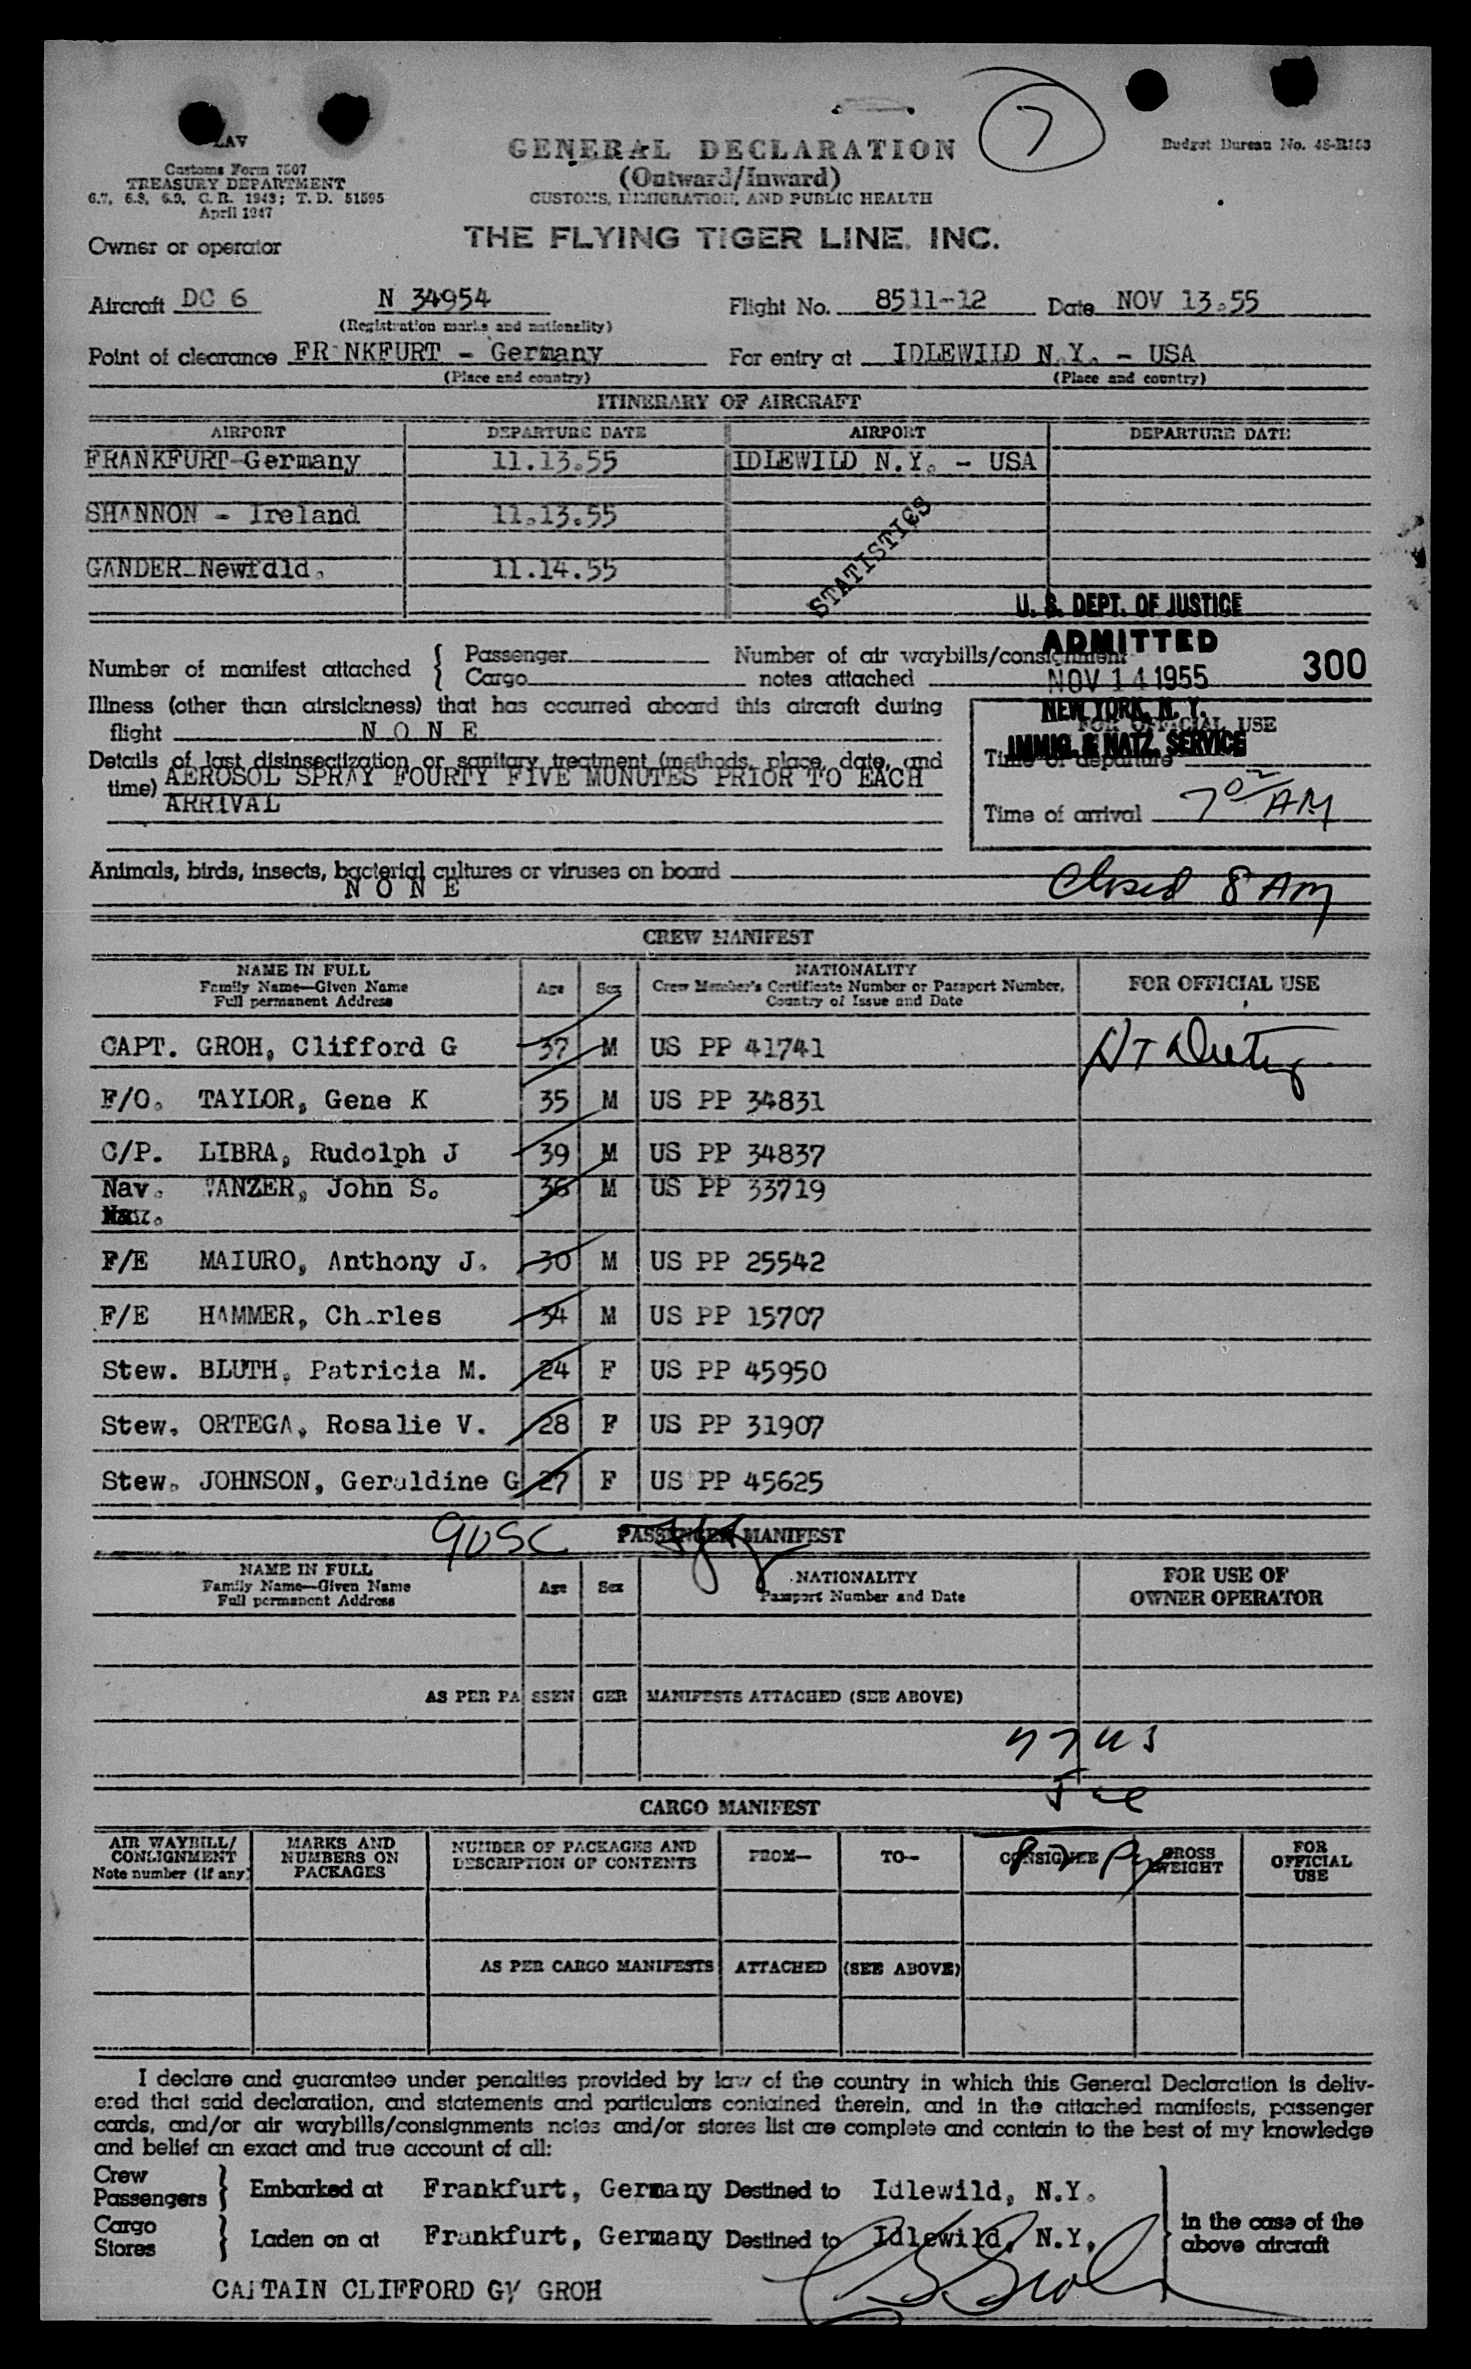 7
GENERAL DECLARATION
(Outward/Inward)
CUSTOMS, IMMIGRATION, AND PUBLIC HEALTH
Budget Bureau No. 48-R153
Customs Form 7507
TREASURY DEPARTMENT
6.7, 6.8, 6.9, C. R. 1943; T. D. 51595
April 1947
Owner or operator
THE FLYING TIGER LINE, INC.
Aircraft DC 6 N 34954 Flight No. 8511-12 Date NOV 13.55
(Registration marks and nationality)
Point of clearance FR NKFURT - Germany For entry at IDLEWILD N.Y. - USA
(Place and country) (Place and country)
ITINERARY OF AIRCRAFT
AIRPORT DEPARTURE DATE AIRPORT DEPARTURE DATE
FRANKFURT-Germany 11.13.55 IDLEWILD N.Y. - USA
SHANNON - Ireland 11.13.55
STATISTICS
GANDER-Newfdld. 11.14.55
U. S. DEPT. OF JUSTICE
ADMITTED
NOV 14 1955
NEW YORK, N. Y.
IMMIG. & NATZ. SERVICE
300
Number of manifest attached { Passenger Number of air waybills/consignment
Cargo notes attached
Illness (other than airsickness) that has occurred aboard this aircraft during
flight N O N E
FOR OFFICIAL USE
Details of last disinsectization or sanitary treatment (methods, place, date, and
time) AEROSOL SPRAY FOURTY FIVE MUNUTES PRIOR TO EACH
ARRIVAL
Time of departure
Time of arrival 7 02 AM
Animals, birds, insects, bacterial cultures or viruses on board
N O N E
Closed 8 AM
CREW MANIFEST
NAME IN FULL
Family Name—Given Name
Full permanent Address
Age Sex
NATIONALITY
Crew Member's Certificate Number or Passport Number,
Country of Issue and Date
FOR OFFICIAL USE
CAPT. GROH, Clifford G 37 M US PP 41741
F/O. TAYLOR, Gene K 35 M US PP 34831
C/P. LIBRA, Rudolph J 39 M US PP 34837
Nav. WANZER, John S. 36 M US PP 33719
F/E MAIURO, Anthony J. 30 M US PP 25542
F/E HAMMER, Ch rles 34 M US PP 15707
Stew. BLUTH, Patricia M. 24 F US PP 45950
Stew. ORTEGA, Rosalie V. 28 F US PP 31907
Stew. JOHNSON, Geraldine G 27 F US PP 45625
9USC
PASSENGER MANIFEST
NAME IN FULL
Family Name—Given Name
Full permanent Address
Age Sex
NATIONALITY
Passport Number and Date
FOR USE OF
OWNER OPERATOR
AS PER PASSENGER MANIFESTS ATTACHED (SEE ABOVE)
77 US
CARGO MANIFEST
AIR WAYBILL/
CONLIGNMENT
Note number (if any)
MARKS AND
NUMBERS ON
PACKAGES
NUMBER OF PACKAGES AND
DESCRIPTION OF CONTENTS
FROM—
TO—
CONSIGNEE
GROSS
WEIGHT
FOR
OFFICIAL
USE
AS PER CARGO MANIFESTS ATTACHED (SEE ABOVE)
I declare and guarantee under penalties provided by law of the country in which this General Declaration is deliv-
ered that said declaration, and statements and particulars contained therein, and in the attached manifests, passenger
cards, and/or air waybills/consignments notes and/or stores list are complete and contain to the best of my knowledge
and belief an exact and true account of all:
Crew
Passengers } Embarked at Frankfurt, Germany Destined to Idlewild, N.Y.
Cargo
Stores } Laden on at Frankfurt, Germany Destined to Idlewild, N.Y.
in the case of the
above aircraft
CAPTAIN CLIFFORD GY GROH